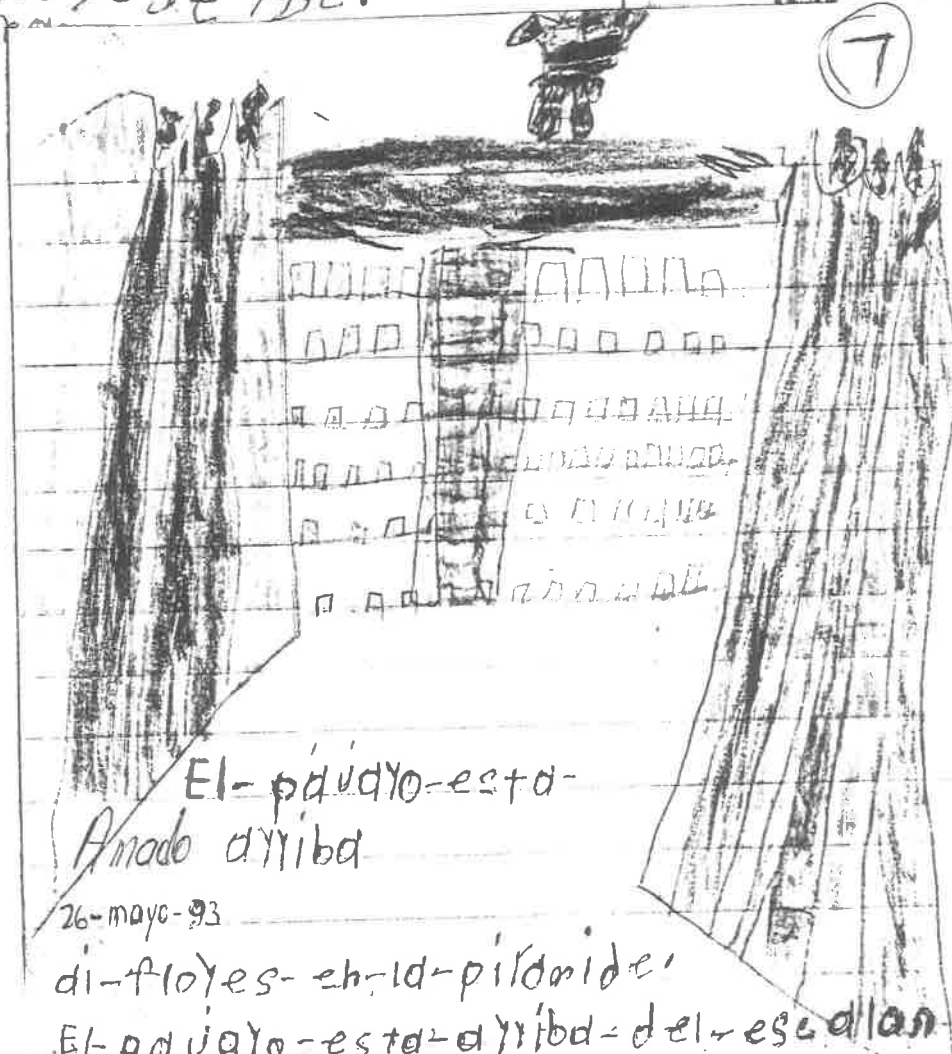 7
El-pajaro-esta-
Amado arriba
26-mayo-93
ai-flores-en-la-piramide.
El-pajaro-esta-arriba-del-escallan-